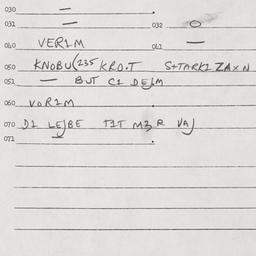 030 —
031 — 032 O
040 VER1M 041 —
050 KNOBU(235 KRO.T S+TARK1 ZAXN
051 — BUT C1 DEJM
060 VOR1M
070 D1 LEJBE T1T M3R VAJ
071